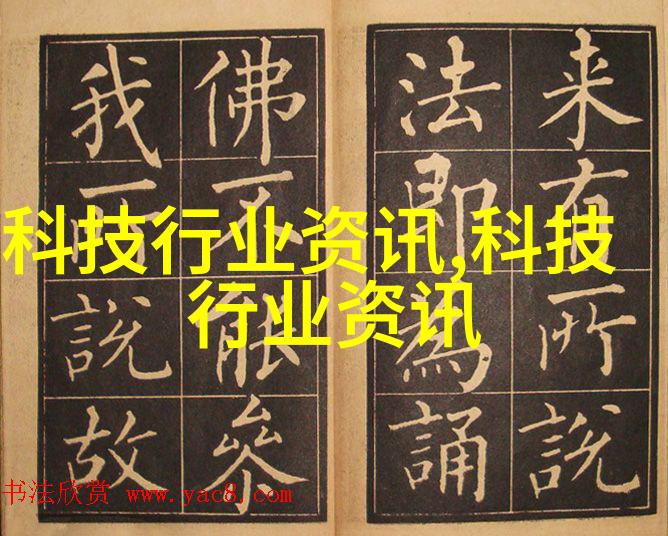 来有所說
法即為誦
佛不能叅
我所說故
科技行业资讯,科技
行业资讯
书法欣赏 www.yac8.com